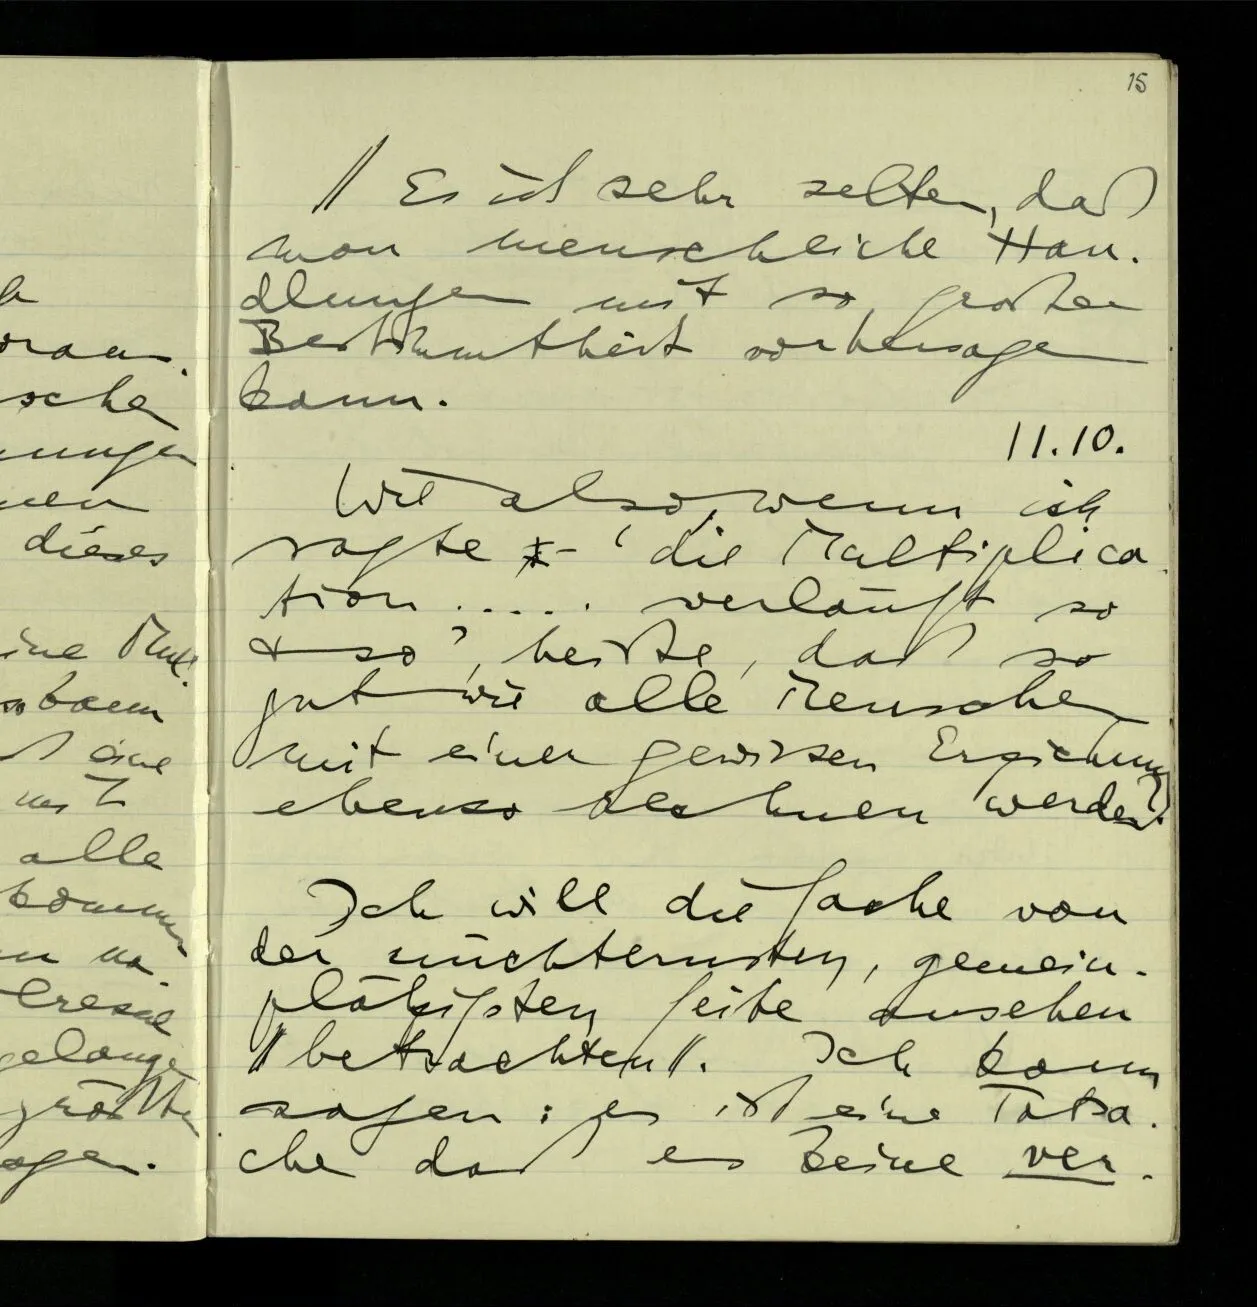 oraus.
schen
nungen
nen
dieses
eine Mul
kann
eine
mit
alle
komm
gelange
größte
agen.
15
// Es ist sehr selten, daß
man menschliche Han-
dlungen mit so großer
Bestimmtheit vorhersagen
kann.
11.10.
Wie also, wenn ich
sagte 'die Multiplica-
tion ..... verläuft so
& so', heiße, daß so
gut wie alle Menschen
mit einer gewissen Erziehung
ebenso rechnen werden?
Ich will die Sache von
der nüchternsten, gemein-
plätzigsten, Seite ansehen
//betrachten//. Ich kann
sagen: es ist eine Tatsa-
che daß es keine ver-